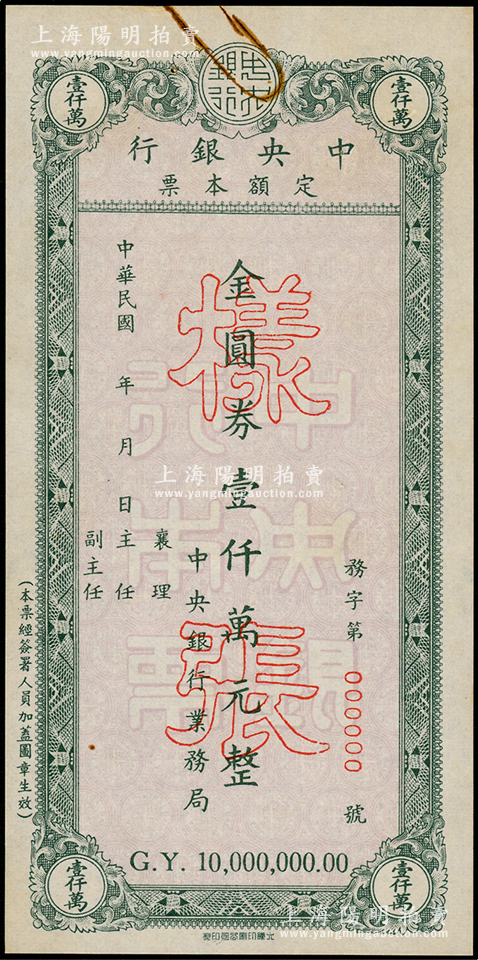 上海陽明拍賣
www.yangmingauction.com
中央銀行
壹仟萬
壹仟萬
中央銀行
定額本票
務字第 0000000 號
金圓券壹仟萬元整
中央銀行業務局
襄理
主任
副主任
中華民國 年 月 日
樣張
中央銀行
本票
上海陽明拍賣
www.yangmingauction.com
(本票經簽署人員加蓋圖章生效)
G.Y. 10,000,000.00
壹仟萬
壹仟萬
上海陽明拍賣
www.yangmingauction.com